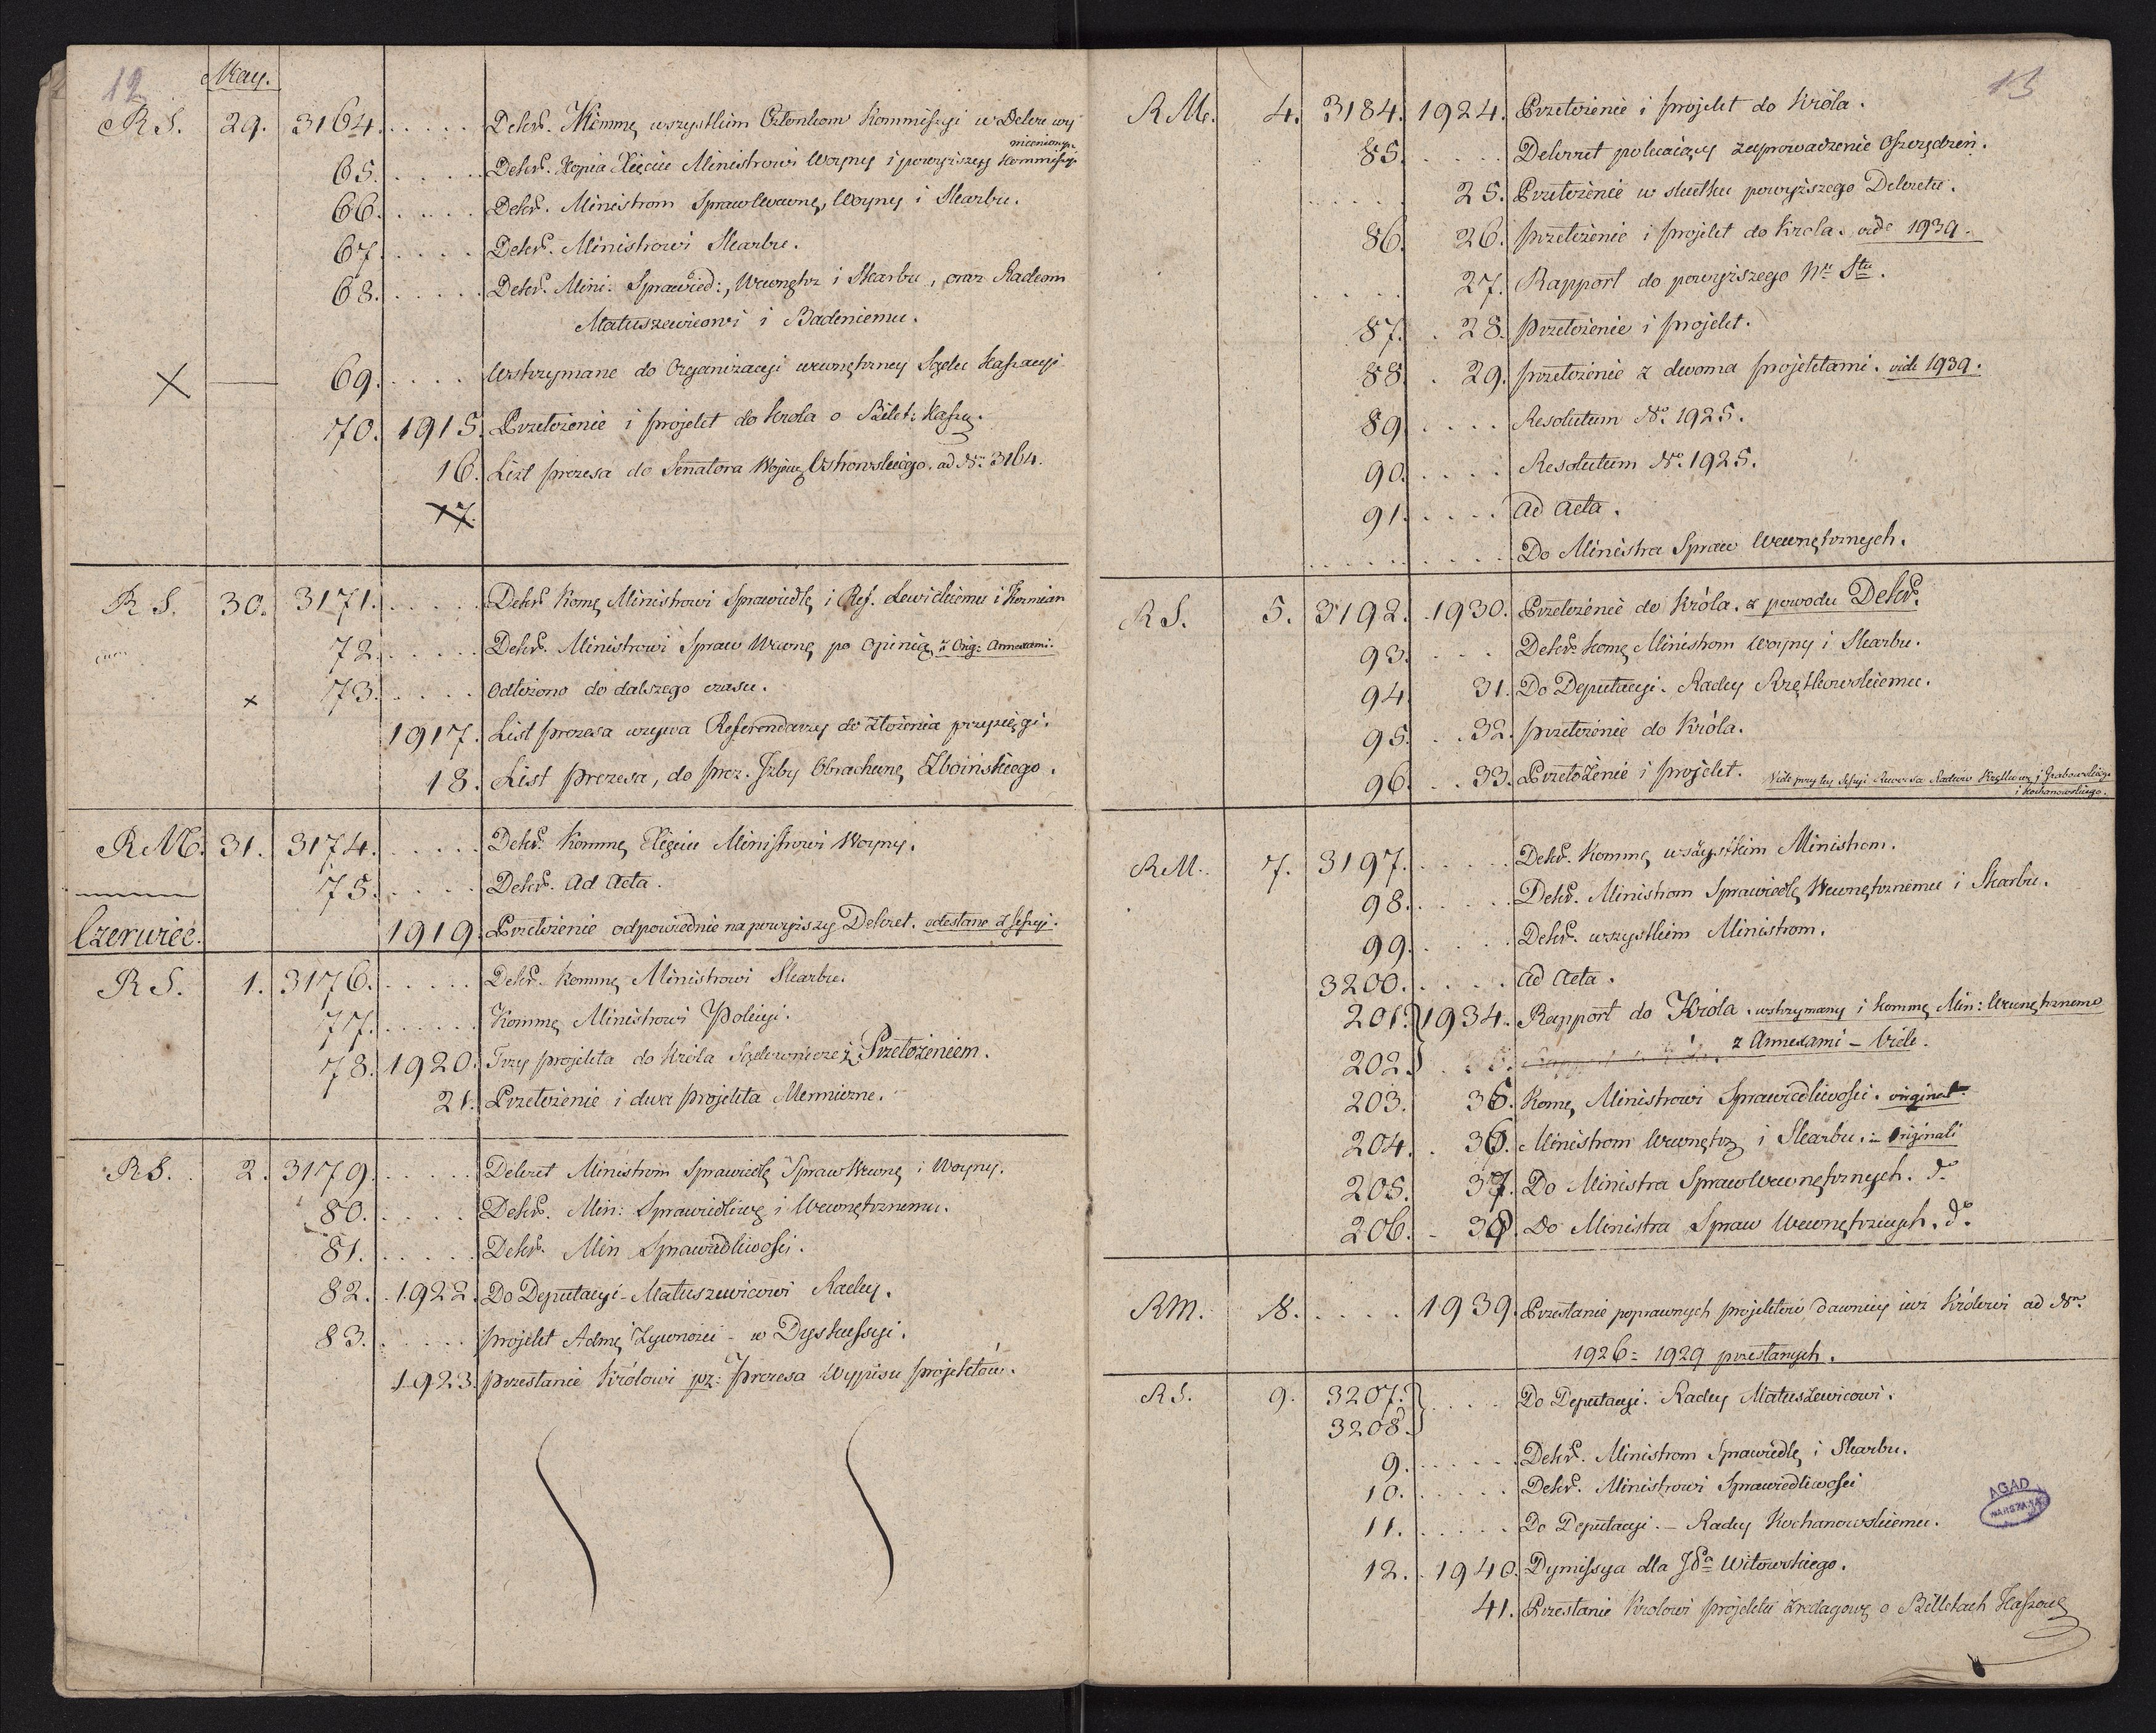 12
May.
R S. 29. 3164. . . . . . Dekr. Kommę wszystkim Członkom Kommissyi w Dekre wy
mienionym
65. . . . . . Dekr. Kopia Xięciu Ministrowi Woyny i powyższey Kommissyi
66. . . . . . Dekr. Ministrom Spraw Wewnę, Woyny i Skarbu.
67. . . . . Dekr. Ministrowi Skarbu.
68. . . . . . Dekr. Mini: Sprawied:, Wewnętrz i Skarbu, oraz Radcom
Matuszewicowi i Badeniemu.
X — 69. . . . . Wstrzymane do Organizacyi wewnętrzney Sądu Kassacyi
70. 1915. Przełożenie i projekt do Krola o Bilet: Kassę.
16. List prezesa do Senatora Wojew Ostrowskiego. ad Nr. 3164.
17.
R S. 30. 3171. . . . . . Dekr. Komę Ministrowi Sprawiedlę i Ref. Lewickiemu i Kozmian
72. . . . . . Dekr. Ministrowi Spraw Wewnę po Opinią z Orig: Annexami.
x 73. . . . . Odłożono do dalszego czasu.
1917. List prezesa wzywa Referendarzy do złożenia przysięgi.
18. List Prezesa, do prez. Izby Obrachunę Zboinskiego.
R M. 31. 3174. . . . . . Dekr. Kommę Xięciu Ministrowi Woyny.
75. . . . . Dekr. Ad Acta.
Czerwiec.
1919. Przełożenie odpowiednie na powyższy Dekret. odesłano z Sessyi.
R S. 1. 3176. . . . . . Dekr. Kommę Ministrowi Skarbu.
77. . . . . . . Kommę Ministrowi Policyi.
78. 1920. Trzy projekta do Króla Sądownicze z Przełożeniem.
21. Przełożenie i dwa projekta Mennicze.
R S. 2. 3179. . . . . . Dekret Ministrom Sprawiedlę Spraw Wewnę i Woyny.
80. . . . . Dekr. Min: Sprawiedliwę i Wewnętrznemu.
81. . . . . . Dekr. Min Sprawiedliwości.
82. 1922. Do Deputacyi - Matuszewicowi Radcy.
83. . . . . . projekt Admę Żywności - w Dyskussyi.
1923. przesłanie Królowi prz: Prezesa Wypisu projektów.
13
R M. 4. 3184. 1924. Przełożenie i projekt do Króla.
85. . . . . Dekret polecaiący zaprowadzenie Oszczędzeń.
. . . . . 25. Przełożenie w skutku powyższego Dekretu.
86. 26. przełożenie i projekt do Krola. vide 1939.
. . . . 27. Rapport do powyższego
87. . 28. przełożenie i projekt.
88. . 29. przełożenie z dwoma projektami. vide 1939.
89. . . . . Resolutum No. 1925.
90. . . . . Resolutum No. 1925.
91. . . . . Ad Acta.
. . . . . . . . . . Do Ministra Spraw Wewnętrznych.
R S. 5. 3192. 1930. Przełożenie do Króla. z powodu Dekr.
93. . . . Dekr. Komę Ministrom Woyny i Skarbu.
94. 31. Do Deputacyi. Radcy Rzętkowskiemu.
95. . . 32. przełożenie do Króla.
96. . . 33. Przełożenie i projekt. Vide przy tey Sessyi Rewersa Radców i Grabowskiego
i Kochanowskiego.
R M. 7. 3197. . . . . . Dekr. Kommę wszystkim Ministrom.
98. . . . . . Dekr. Ministrom Sprawiedlę Wewnętrznemu i Skarbu.
99. . . . . Dekr. wszystkim Ministrom.
3200. . . . . Ad Acta.
201. 1934. Rapport do Króla, wstrzymany i Kommę Min: Wewnętrznemu
202. z Annexami - Vide.
203. 35. Komę, Ministrowi Sprawiedliwości. original
204. . 36. Ministrom Wewnętrz i Skarbu. in Originali
205. 37. Do Ministra Spraw Wewnętrznych. do
206. - 38. Do Ministra Spraw Wewnętrznych. do
R M. 8. . . . . 1939. Przesłanie poprawnych projektów dawniey iuż Królowi ad No.
1926 = 1929 przesłanych.
R S. 9. 3207. . . . . Do Deputacyi. Radcy Matuszewicowi.
3208.
9. . . . . . Dekr. Ministrom Sprawiedlę i Skarbu.
10. . . . . . Dekr. Ministrowi Sprawiedliwości
11. . . . . . Do Deputacyi. - Radcy Kochanowskiemu.
12. . 1940. Dymissya dla Witowskiego.
41. Przesłanie Krolowi projektu zredagowę o Billetach Kassowę
AGAD
WARSZAWA